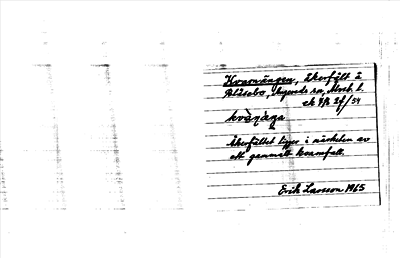 Kvarnvången, åkerfält å
Blåsabo, Agunds sn, Alvst. l.
ek 7f 2f/54
kvàṇäga
Åkerfältet ligger i närheten av
ett gammalt kvarnfall.
Erik Larsson 1965